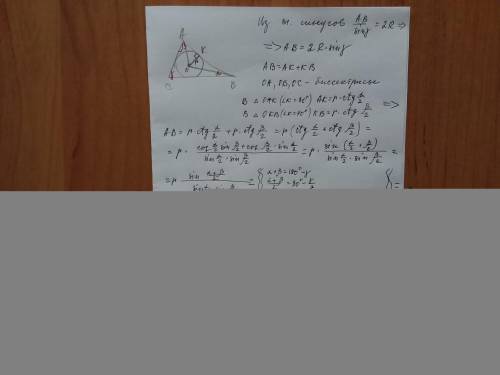 A
K
O
C
B
Из т. синусов AB/sinγ = 2R ⇒
⇒ AB = 2R·sinγ
AB = AK + KB
OA, OB, OC – биссектрисы
В △ OAK (∠K=90°) AK = r·ctg α/2
В △ OKB (∠K=90°) KB = r·ctg β/2 ⇒
AB = r·ctg α/2 + r·ctg β/2 = r (ctg α/2 + ctg β/2) =
= r · (cos α/2 sin β/2 + cos β/2 · sin α/2)/(sin α/2 · sin β/2) = r · sin (α/2 + β/2)/(sin α/2 · sin β/2) =
= r sin (α+β)/2 / (sin α/2 · sin β/2) = { α+β = 180°-γ
(α+β)/2 = 90° - γ/2 } =